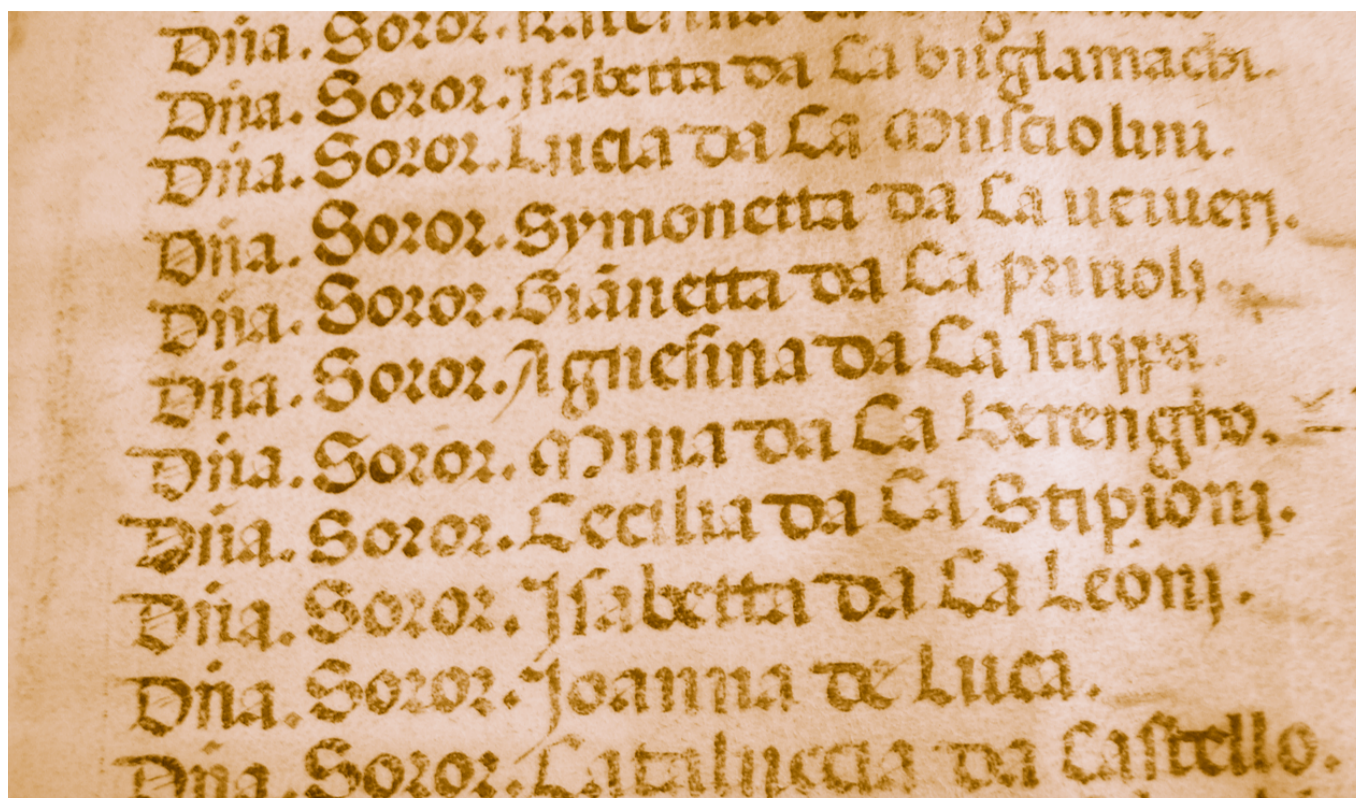 Dn̄a. Soror.
Dn̄a. Soror. Isabetta da Ca buglamachi.
Dn̄a. Soror. Lucia da Ca Musciolini.
Dn̄a. Soror. Symonetta da Ca
Dn̄a. Soror. Giānetta da Ca privoli.
Dn̄a. Soror. Agnesina da Ca stuppa.
Dn̄a. Soror. Mina da Ca berengho.
Dn̄a. Soror. Cecilia da Ca Stipionj.
Dn̄a. Soror. Isabetta da Ca Leonj.
Dn̄a. Soror. Joanna de Luca.
Dn̄a. Soror. da Castello.